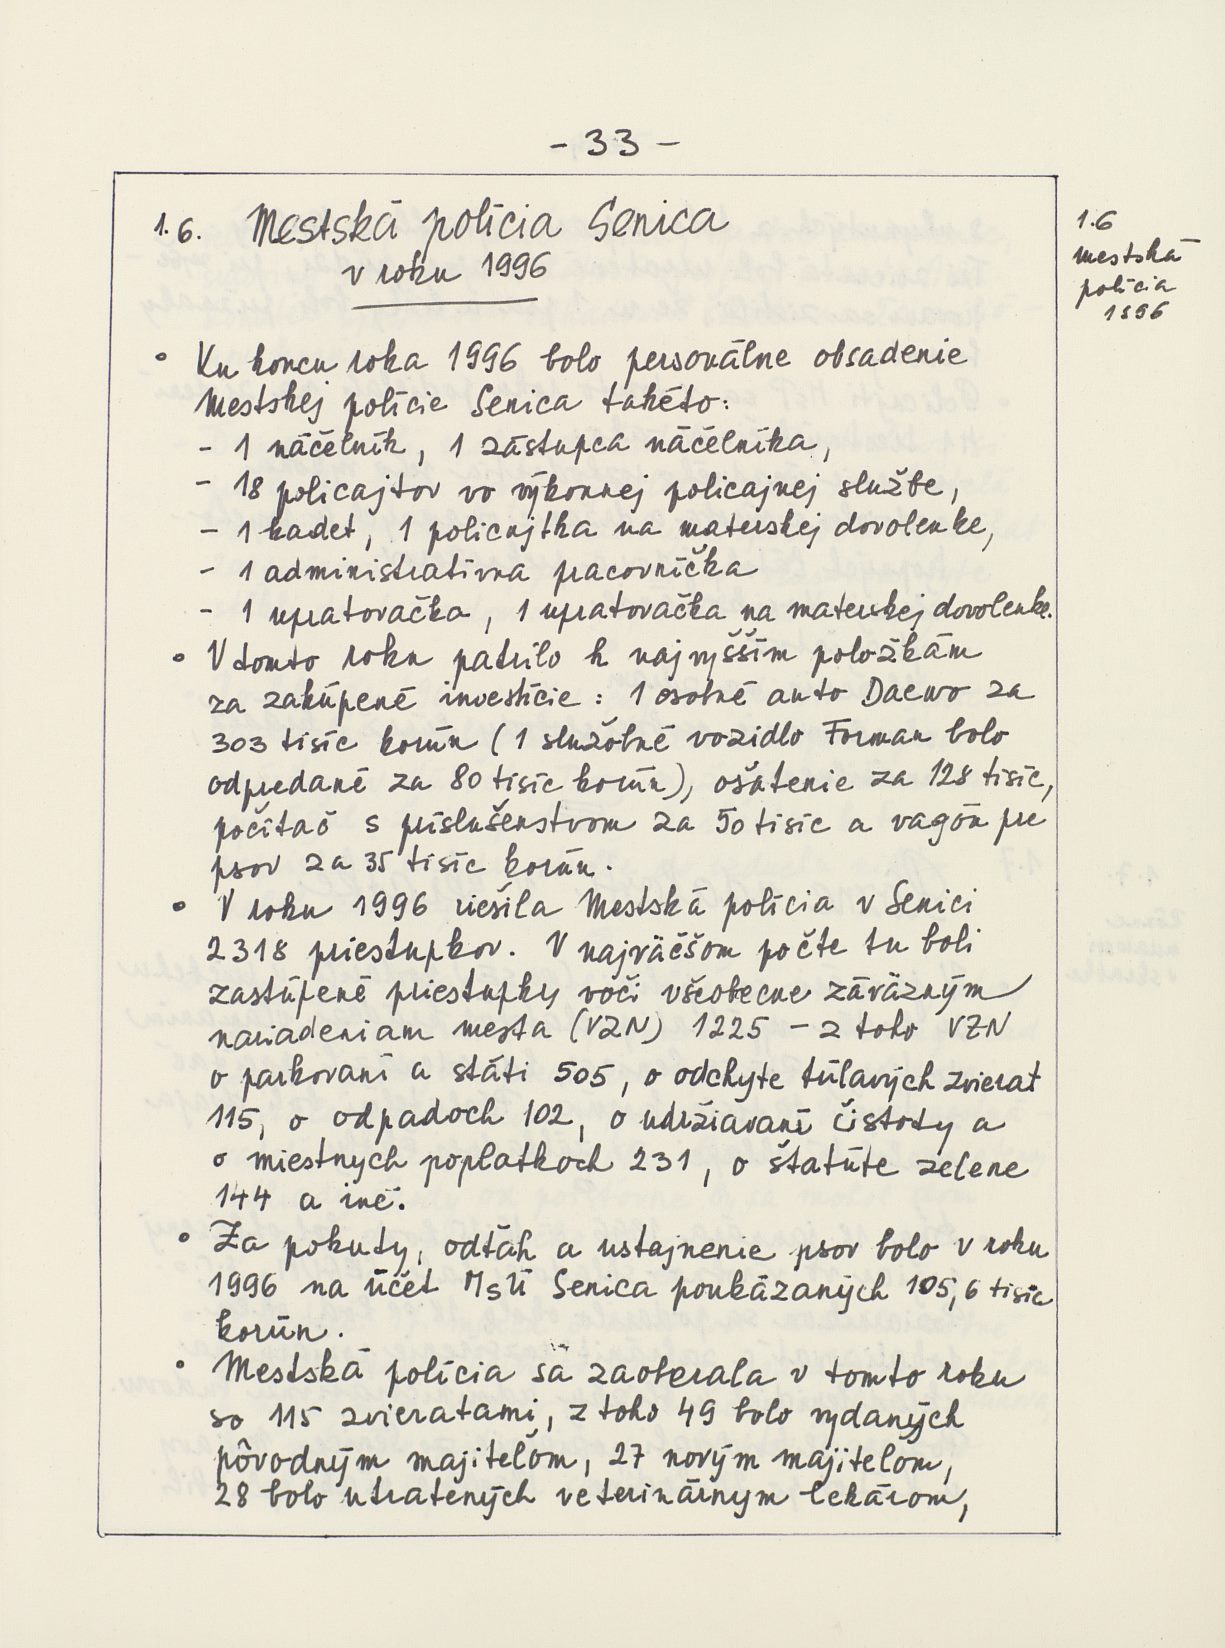 - 33 -
1.6. Mestská polícia Senica
v roku 1996
1.6
mestská
polícia
1996
• Ku koncu roka 1996 bolo personálne obsadenie
Mestskej polície Senica takéto:
- 1 náčelník, 1 zástupca náčelníka,
- 18 policajtov vo výkonnej policajnej službe,
- 1 kadet, 1 policajtka na materskej dovolenke,
- 1 administratívna pracovníčka
- 1 upratovačka, 1 upratovačka na materskej dovolenke.
• V tomto roku patrilo k najvyšším položkám
za zakúpené investície: 1 osobné auto Daewo za
303 tisíc korún (1 služobné vozidlo Forman bolo
odpredané za 80 tisíc korún), ošatenie za 128 tisíc,
počítač s príslušenstvom za 50 tisíc a vagón pre
psov za 35 tisíc korún.
• V roku 1996 riešila Mestská polícia v Senici
2318 priestupkov. V najväčšom počte tu boli
zastúpené priestupky voči všeobecne záväzným
nariadeniam mesta (VZN) 1225 - z toho VZN
o parkovaní a státi 505, o odchyte túlavých zvierat
115, o odpadoch 102, o udržiavaní čistoty a
o miestnych poplatkoch 231, o štatúte zelene
144 a iné.
• Za pokuty, odťah a ustajnenie psov bolo v roku
1996 na účet MsÚ Senica poukázaných 105,6 tisíc
korún.
• Mestská polícia sa zaoberala v tomto roku
so 115 zvieratami, z toho 49 bolo vydaných
pôvodným majiteľom, 27 novým majiteľom,
28 bolo utratených veterinárnym lekárom,